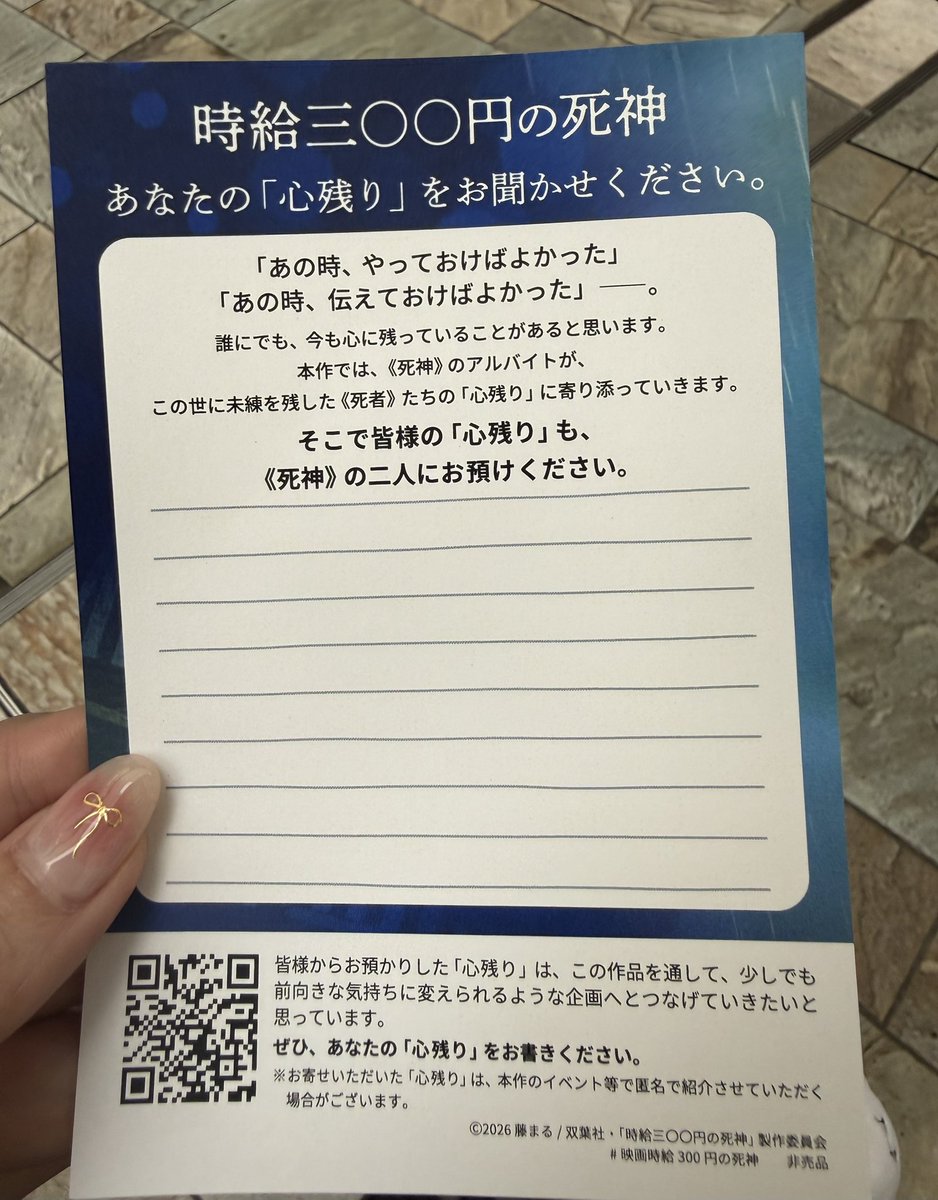 時給三〇〇円の死神
あなたの「心残り」をお聞かせください。
「あの時、やっておけばよかった」
「あの時、伝えておけばよかった」――。
誰にでも、今も心に残っていることがあると思います。
本作では、《死神》のアルバイトが、
この世に未練を残した《死者》たちの「心残り」に寄り添っていきます。
そこで皆様の「心残り」も、
《死神》の二人にお預けください。
皆様からお預かりした「心残り」は、この作品を通して、少しでも
前向きな気持ちに変えられるような企画へとつなげていきたいと
思っています。
ぜひ、あなたの「心残り」をお書きください。
※お寄せいただいた「心残り」は、本作のイベント等で匿名で紹介させていただく
場合がございます。
©2026 藤まる / 双葉社・「時給三〇〇円の死神」製作委員会
#映画時給300円の死神　非売品